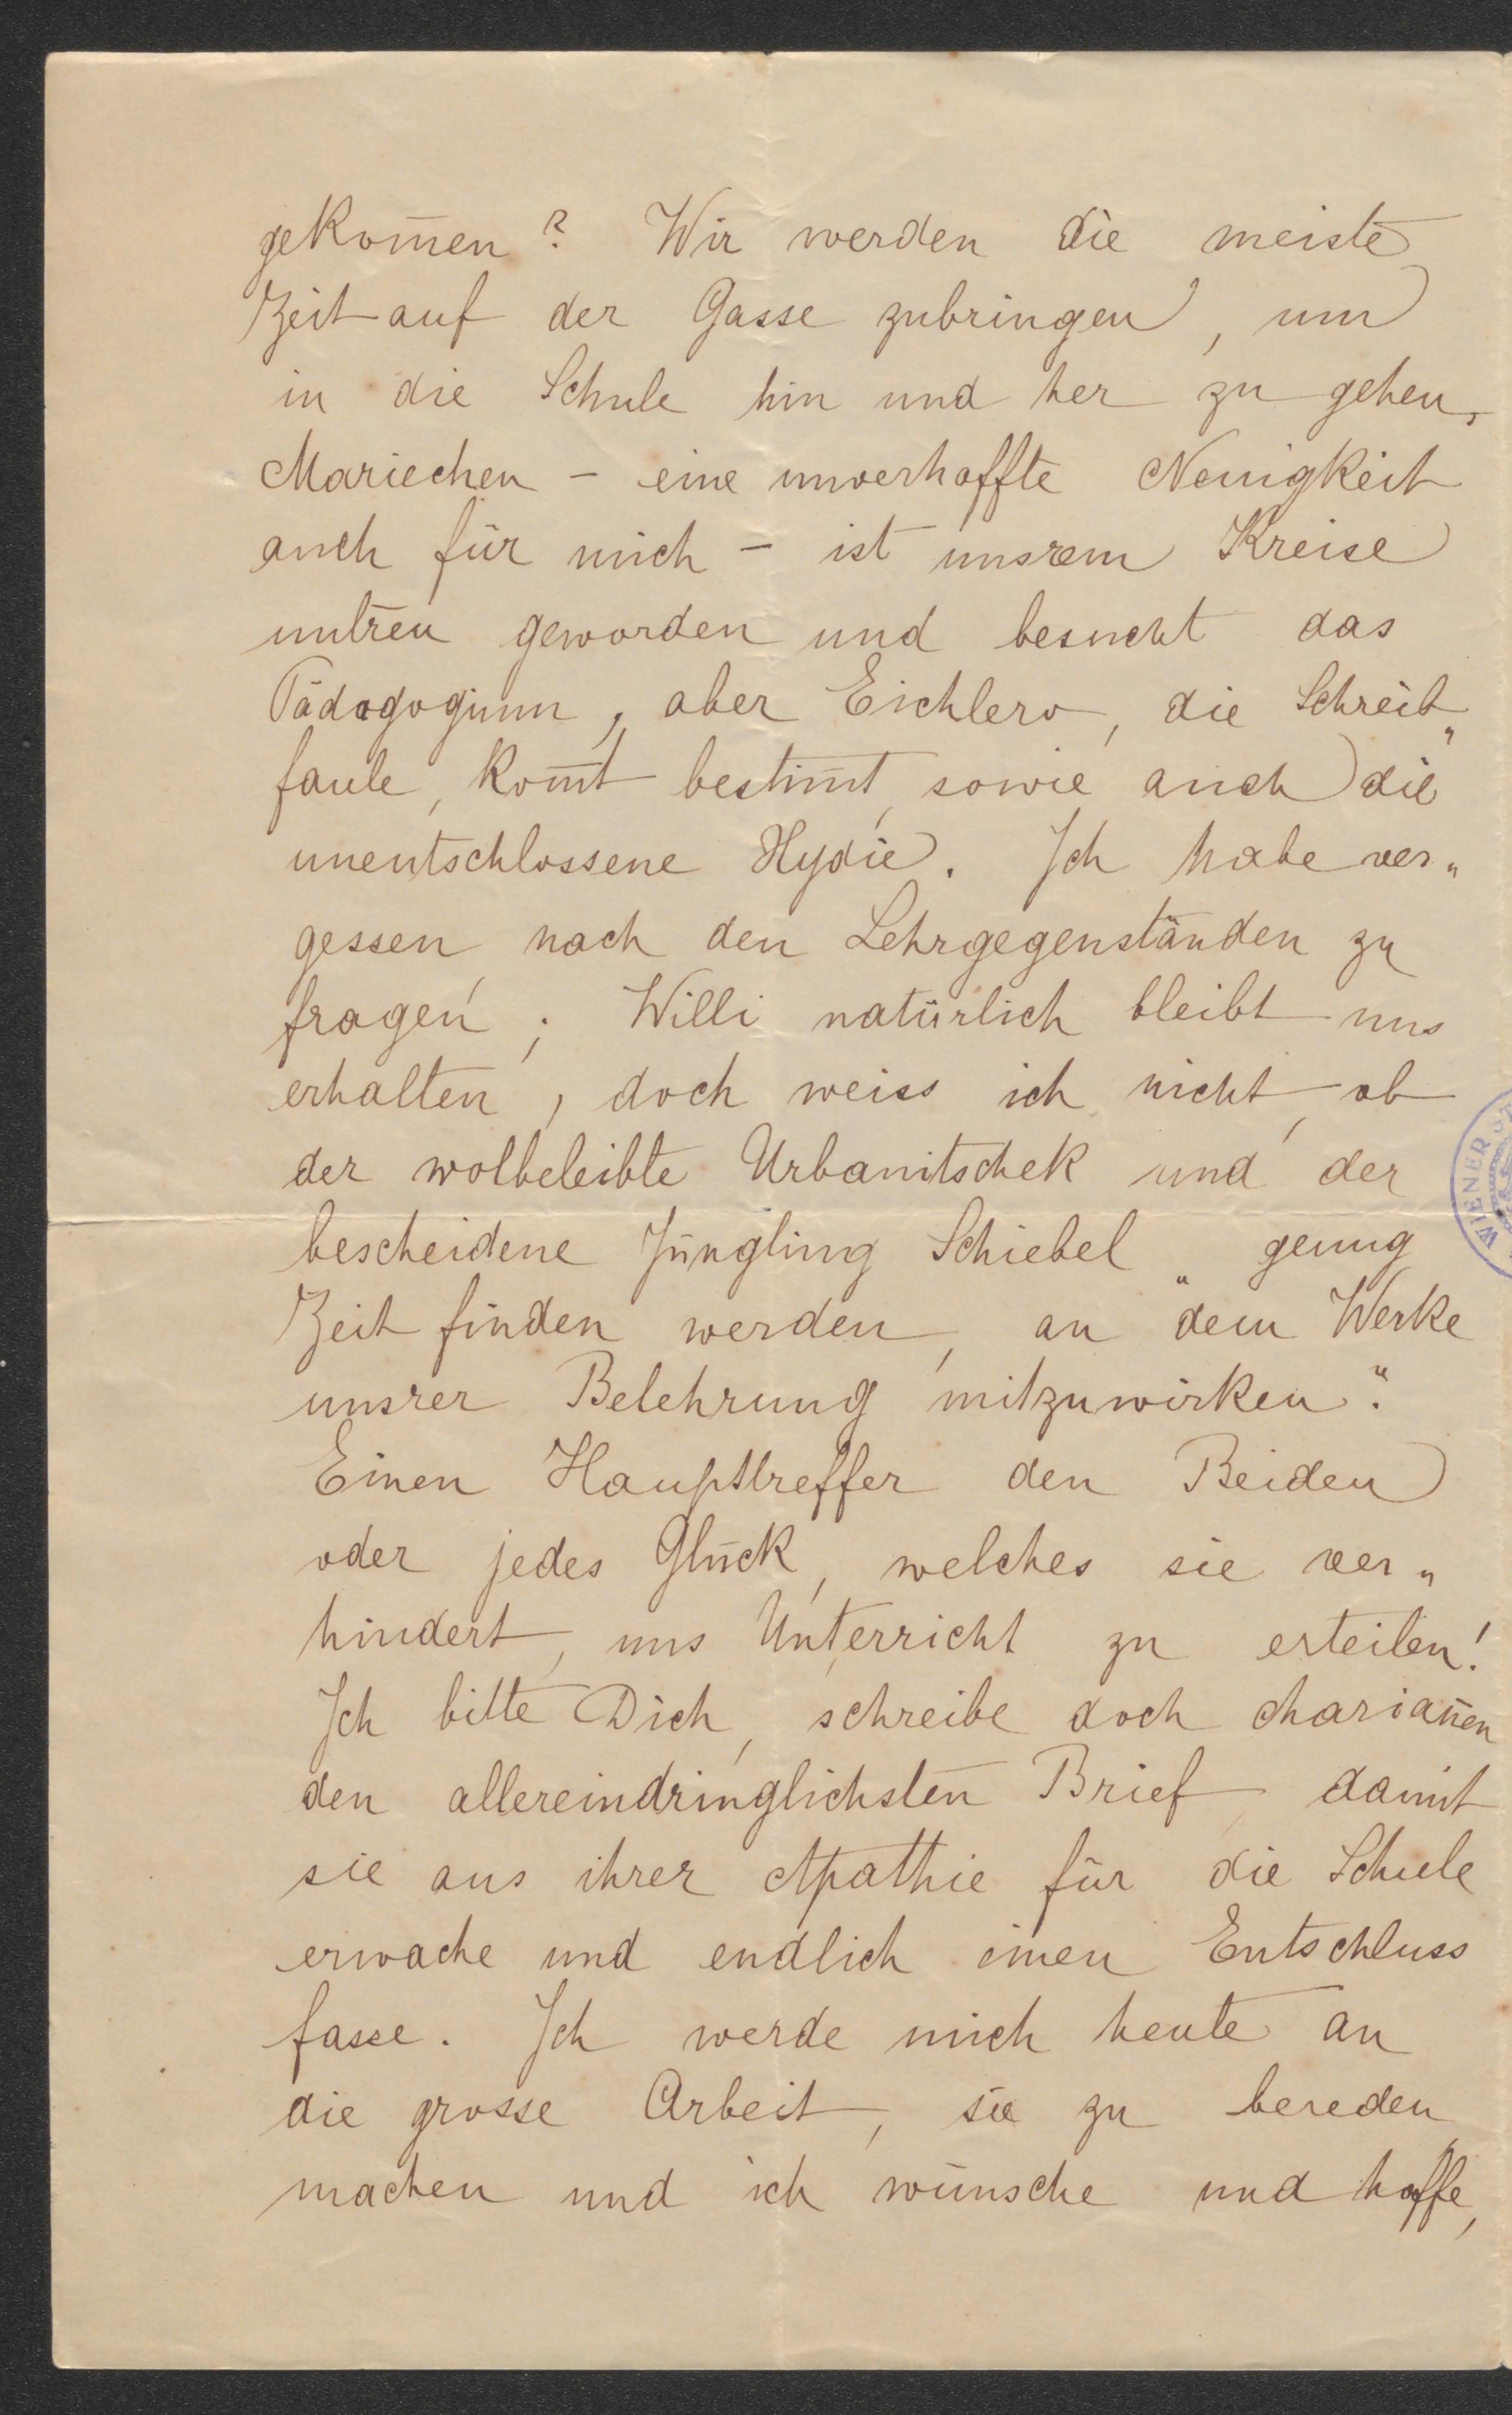 gekom̄en? Wir werden die meiste
Zeit auf der Gasse zubringen, um
in die Schule hin und her zu gehen,
Mariechen - eine unverhoffte Neuigkeit
auch für mich - ist unsrem Kreise
untreu geworden und besucht das
Pädagogium, aber Eichlero, die Schreib„
faule, kom̄t bestim̄t, sowie auch die
unentschlossene Hydie. Ich habe ver„
gessen, nach den Lehrgegenständen zu
fragen; Willi natürlich bleibt uns
erhalten, doch weiss ich nicht, ob
der wolbeleibte Urbanitschek und der
bescheidene Jüngling Schiebel „genug
Zeit finden werden, an dem Werke
unsrer Belehrung mitzuwirken“.
Einen Haupttreffer den Beiden
oder jedes Glück, welches sie ver„
hindert, uns Unterricht zu erteilen!
Ich bitte Dich, schreibe doch Marian̄en
den allereindringlichsten Brief, damit
sie aus ihrer Apathie für die Schule
erwache und endlich einen Entschluss
fasse. Ich werde mich heute an
die grosse Arbeit, sie zu bereden
machen und ich wünsche und hoffe,
WIENER